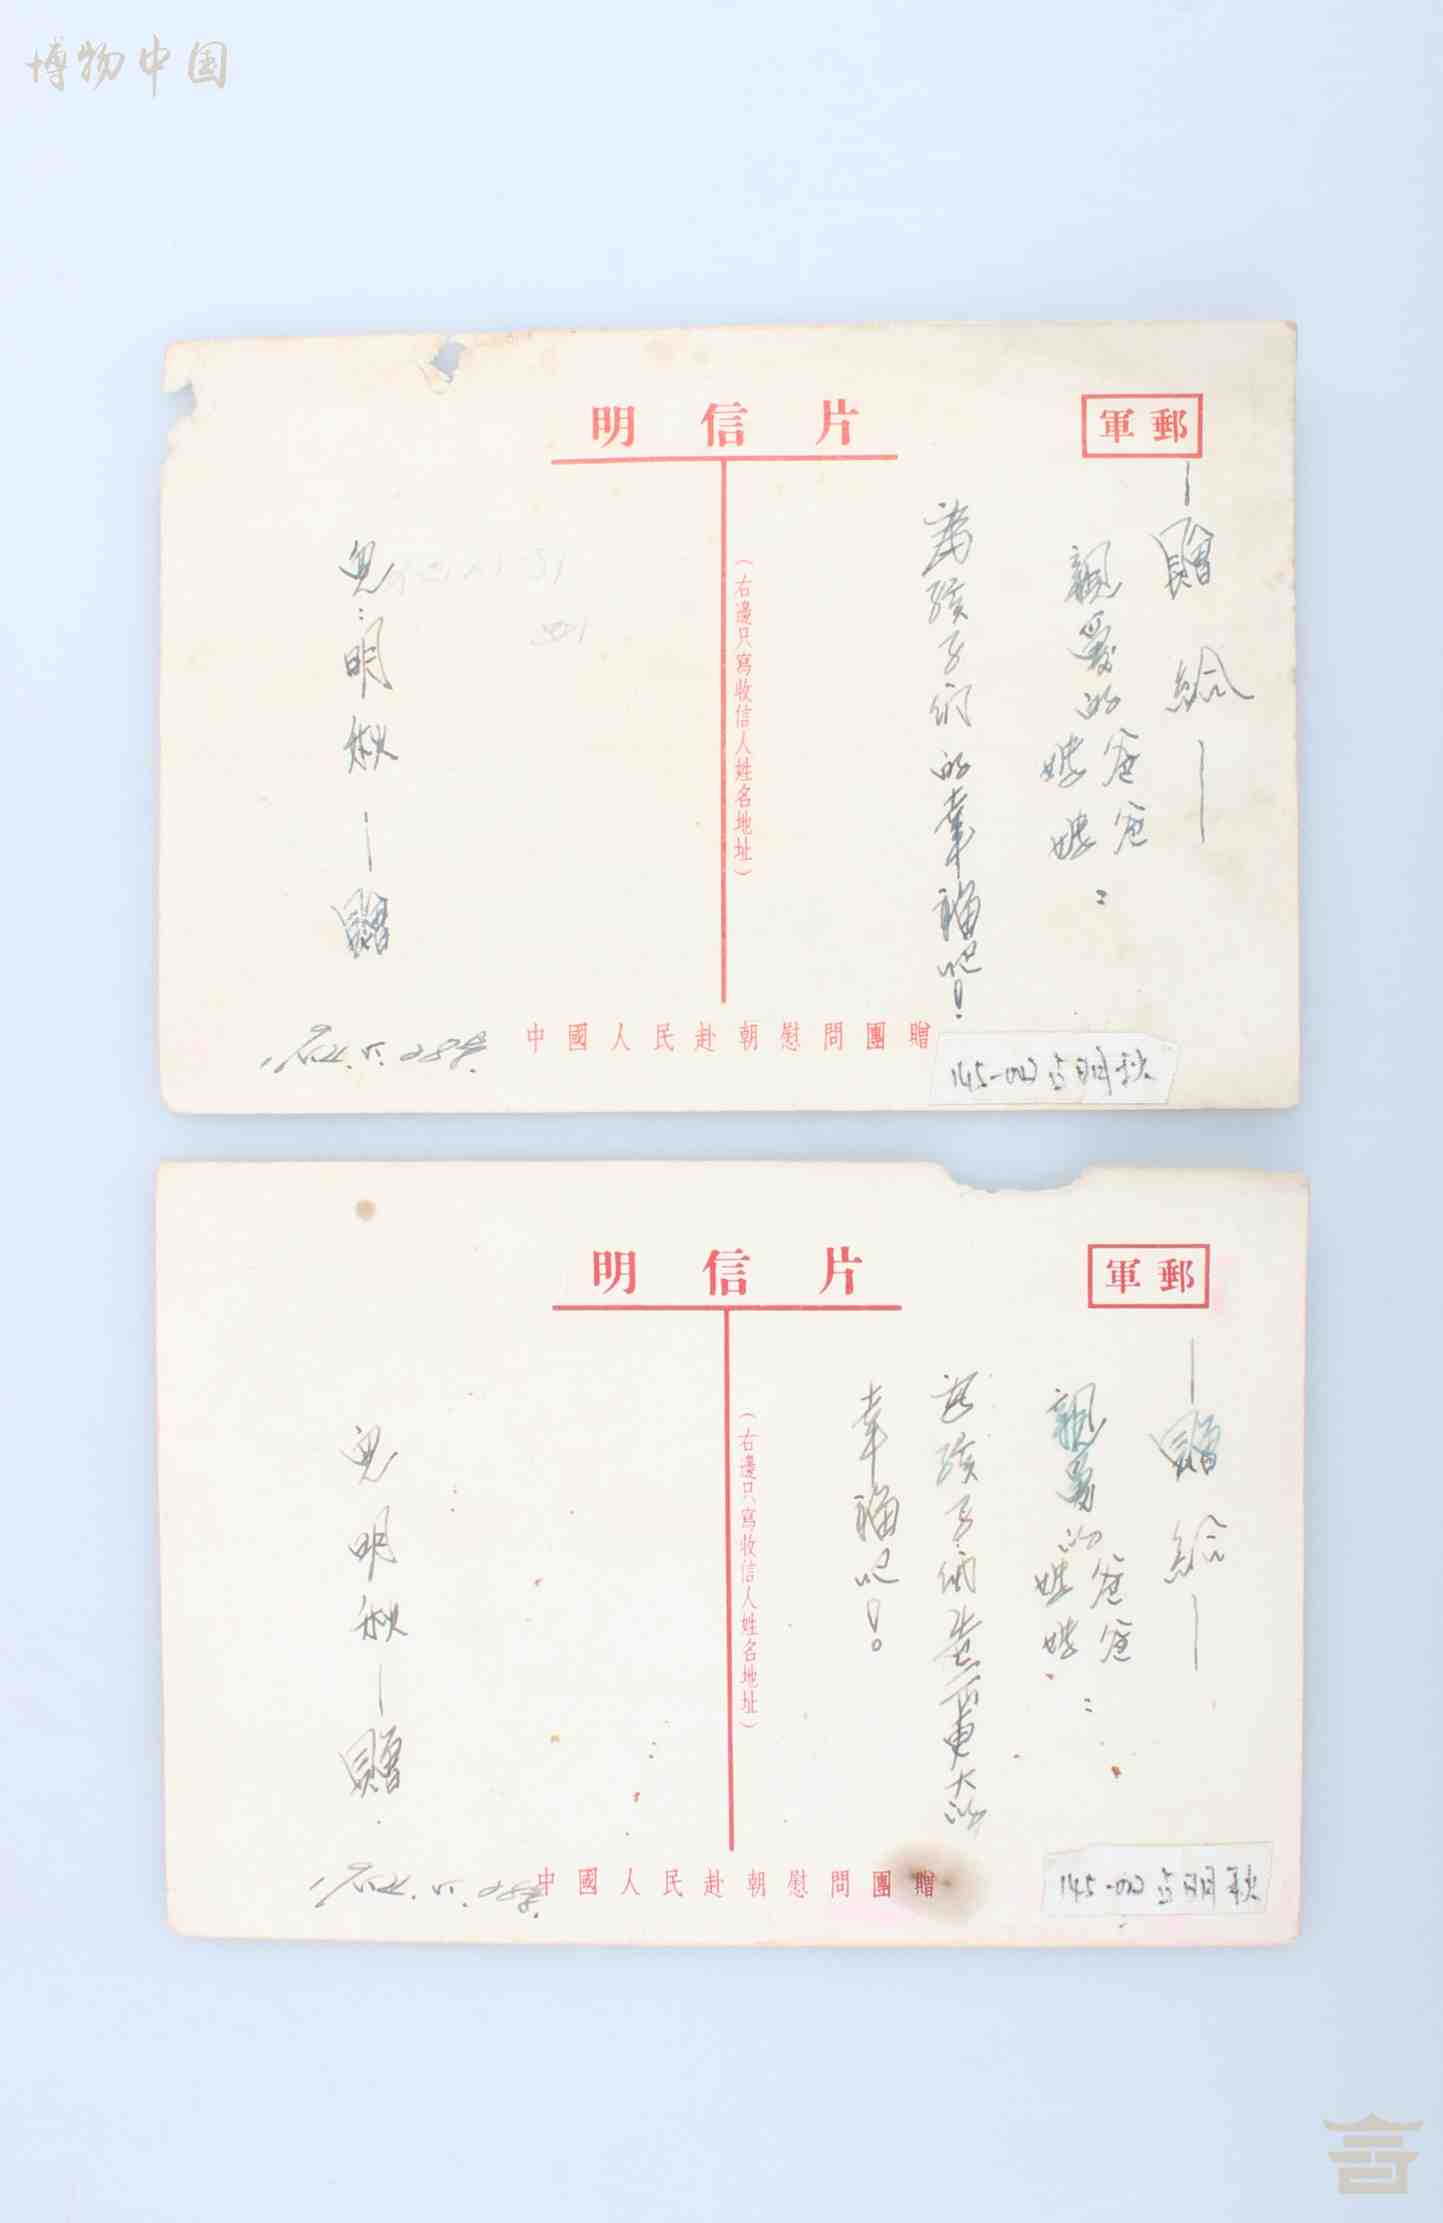 博物中国
明信片
軍郵
—贈給—
親愛的
爸爸
媽媽:
為孩子們的幸福吧!
(右邊只寫收信人姓名地址)
兒:明秋—贈
中國人民赴朝慰問團贈
明信片
軍郵
—贈給—
親愛的
爸爸
媽媽:
為孩子們
更大的
幸福吧!
(右邊只寫收信人姓名地址)
兒明秋—贈
中國人民赴朝慰問團贈